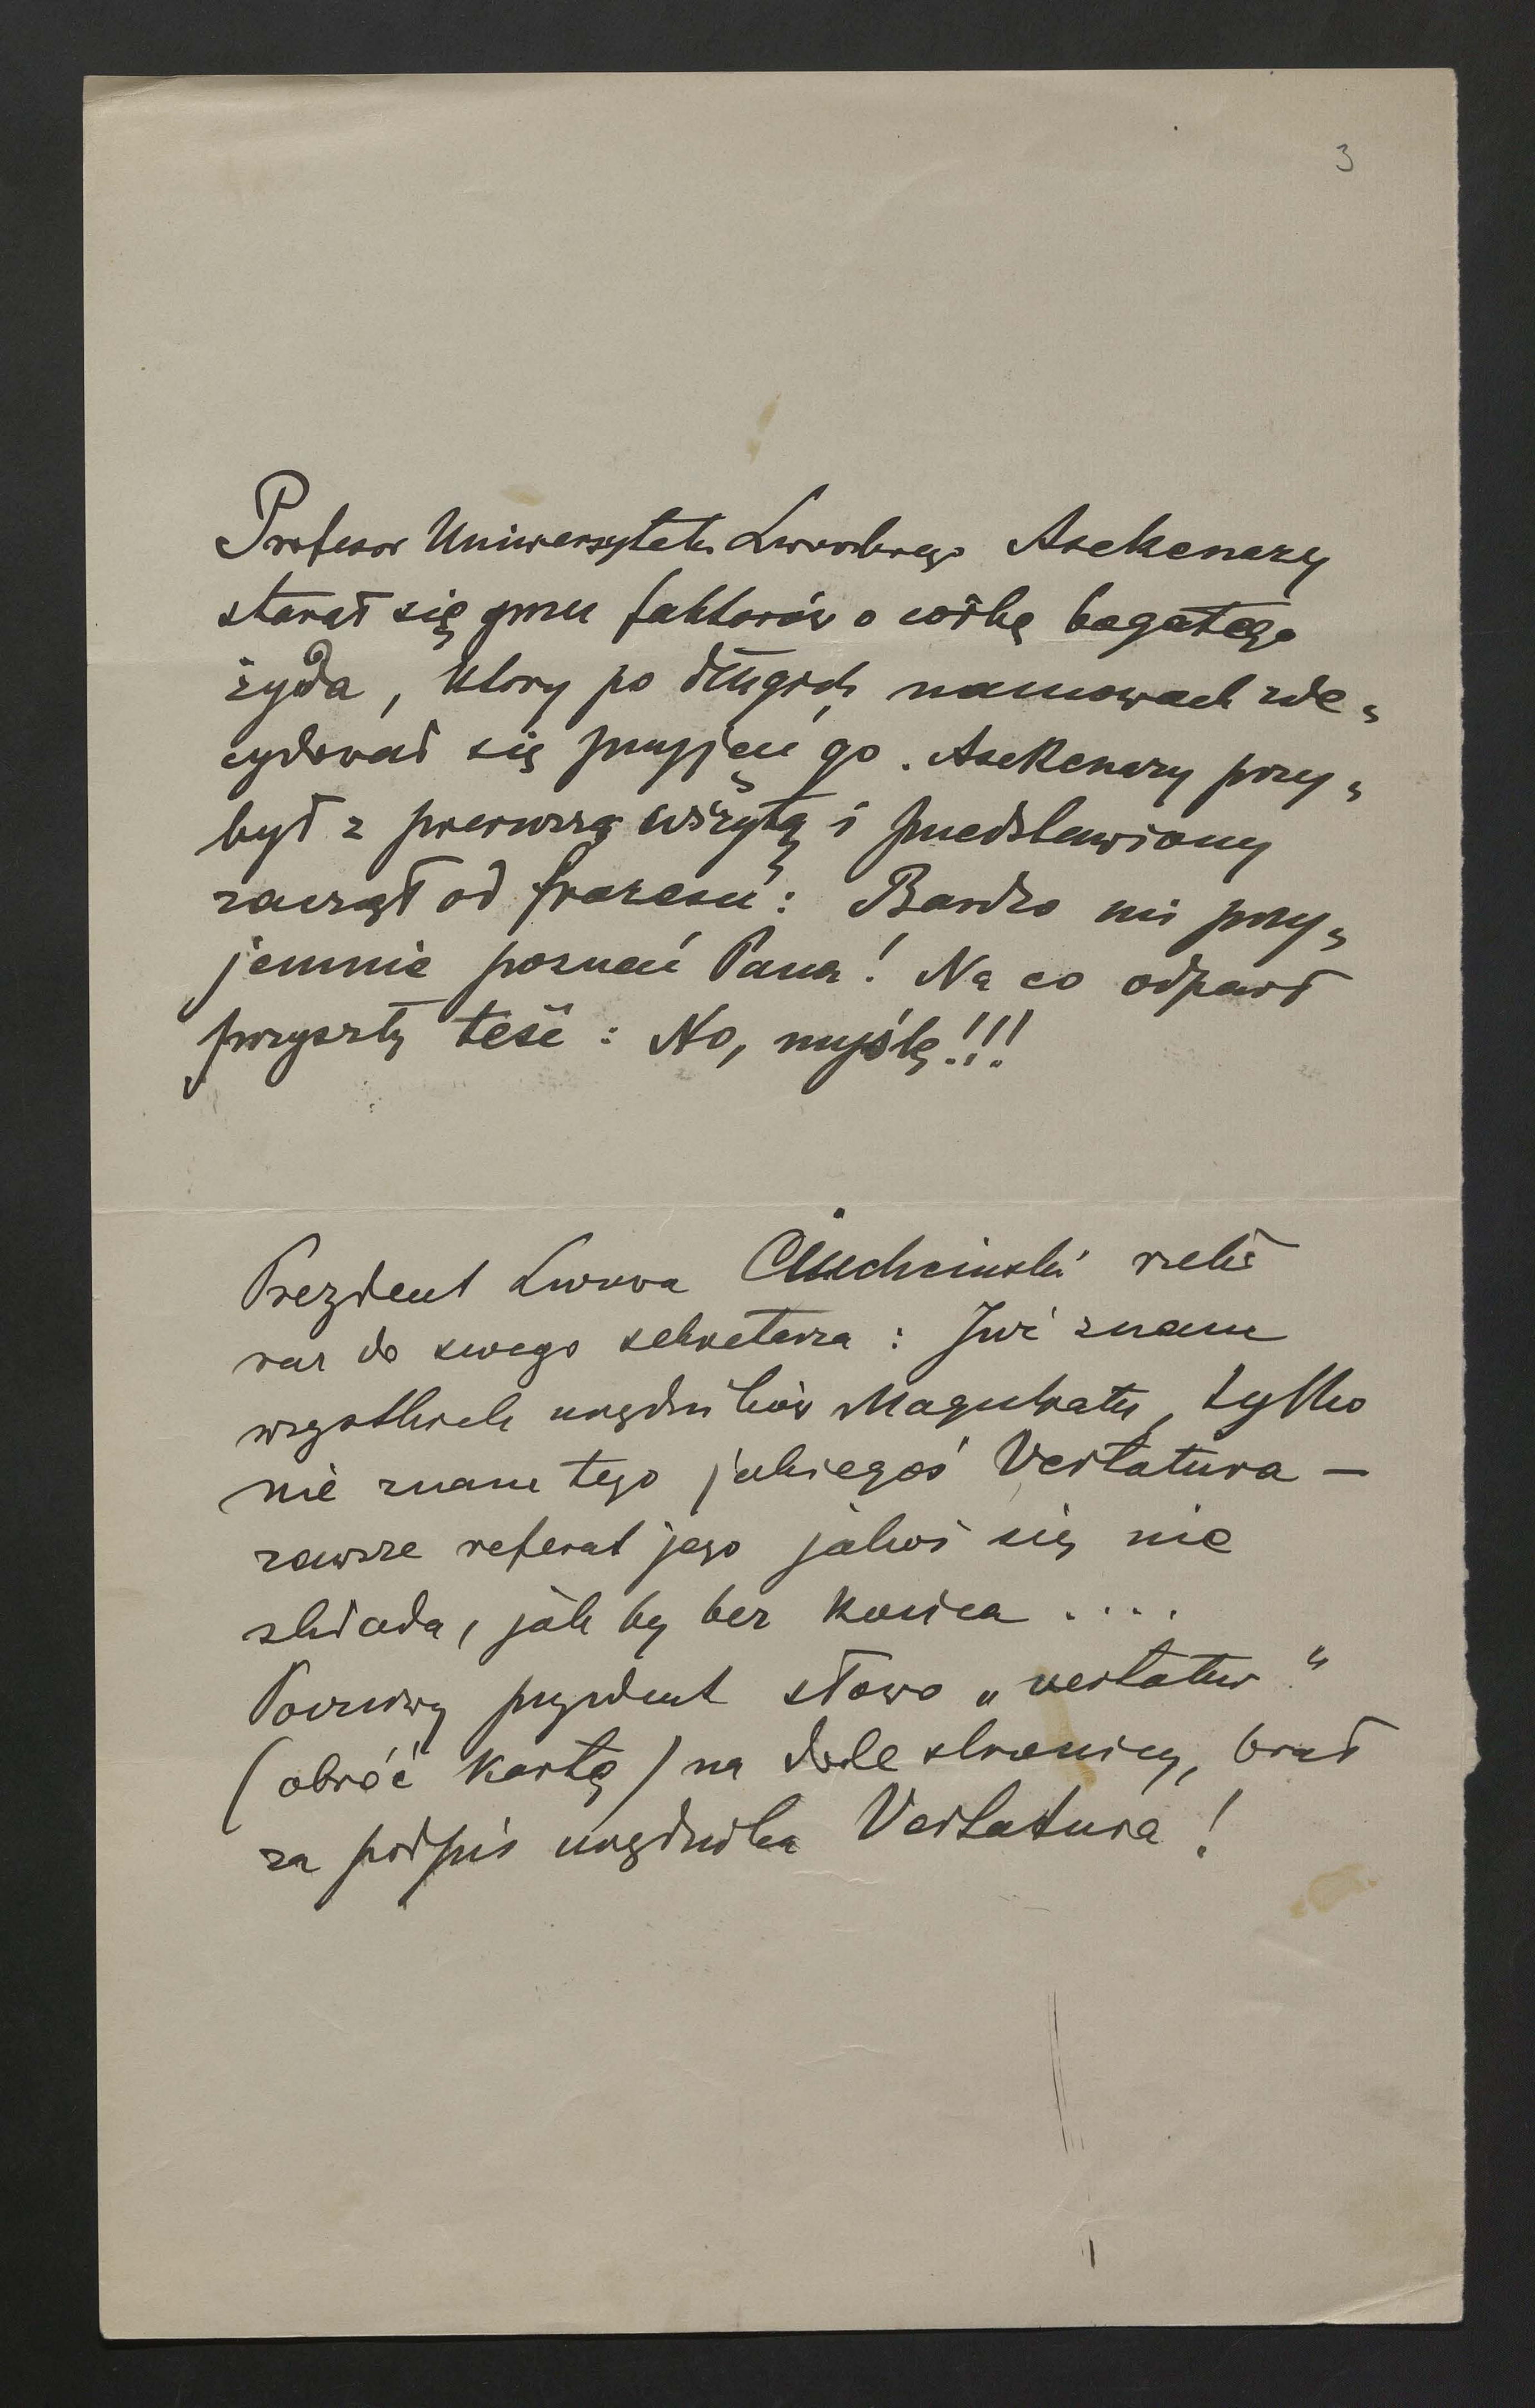 3
Profesor Uniwersytetu Lwowskiego Asekenazy
starał się przez faktorów o córkę bogatego
żyda, który po długich namowach zde„
cydował się przyjąć go. Asekenazy przy„
był z pierwszą wizytą i przedstawiony
zaczął od frazesu: Bardzo mi przy„
jemnie poznać Pana! Na co odparł
przyszły teść: No, myślę!!!
Prezdent Lwowa Ciuchciński rzekł
raz do swego sekretarza: Już znam
wszystkich urzędników Magistratu, tylko
nie znam tego jakiegoś Vertatura —
zawsze referat jego jakoś się nie
składa, jak by bez końca ....
Poczciwy prezydent słowo „vertatur“
(obróć kartę) na dole stronicy, brał
za podpis urzędnika Vertatura!